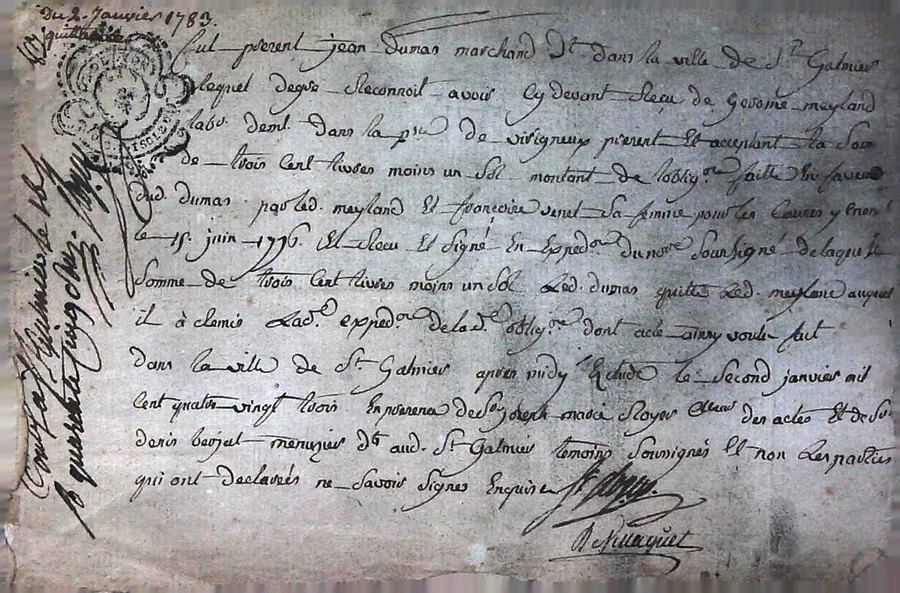 du 2. Janvier 1783.
quittance
fut present jean dumas marchand dt. dans la ville de St. Galmier
lequel degré Reconnoit avoir Cy devant Reçu de gerome meyland
labr. demt. dans la psse de virigneux present Et acceptant la Som
de trois Cent livres moins un Sol montant de loblig.on faitte En faveur
dud. dumas par led. meyland Et francoise venet Sa femme pour les Causes y enon
le 15. juin 1776. Et Reçu Et Signé En Exped.on du no.re Soussigné de laquelle
Somme de trois Cent livres moins un Sol Led. dumas quitte Led. meyland auquel
il à Remis Lad. exped.on de la d. oblig.on dont acte ainsy voulu fait
dans la ville de St. Galmier apres midy Etude le Second janvier mil
Cent quatre vingt trois En presence de Sr. joseph marie Royer des actes Et de Sr.
denis berjat menuzier dt aud. St Galmier temoins Soussignés Et non Les parties
qui ont declarés ne Savoir Signer Enquise
Con.lé a St Galmier le
quarante